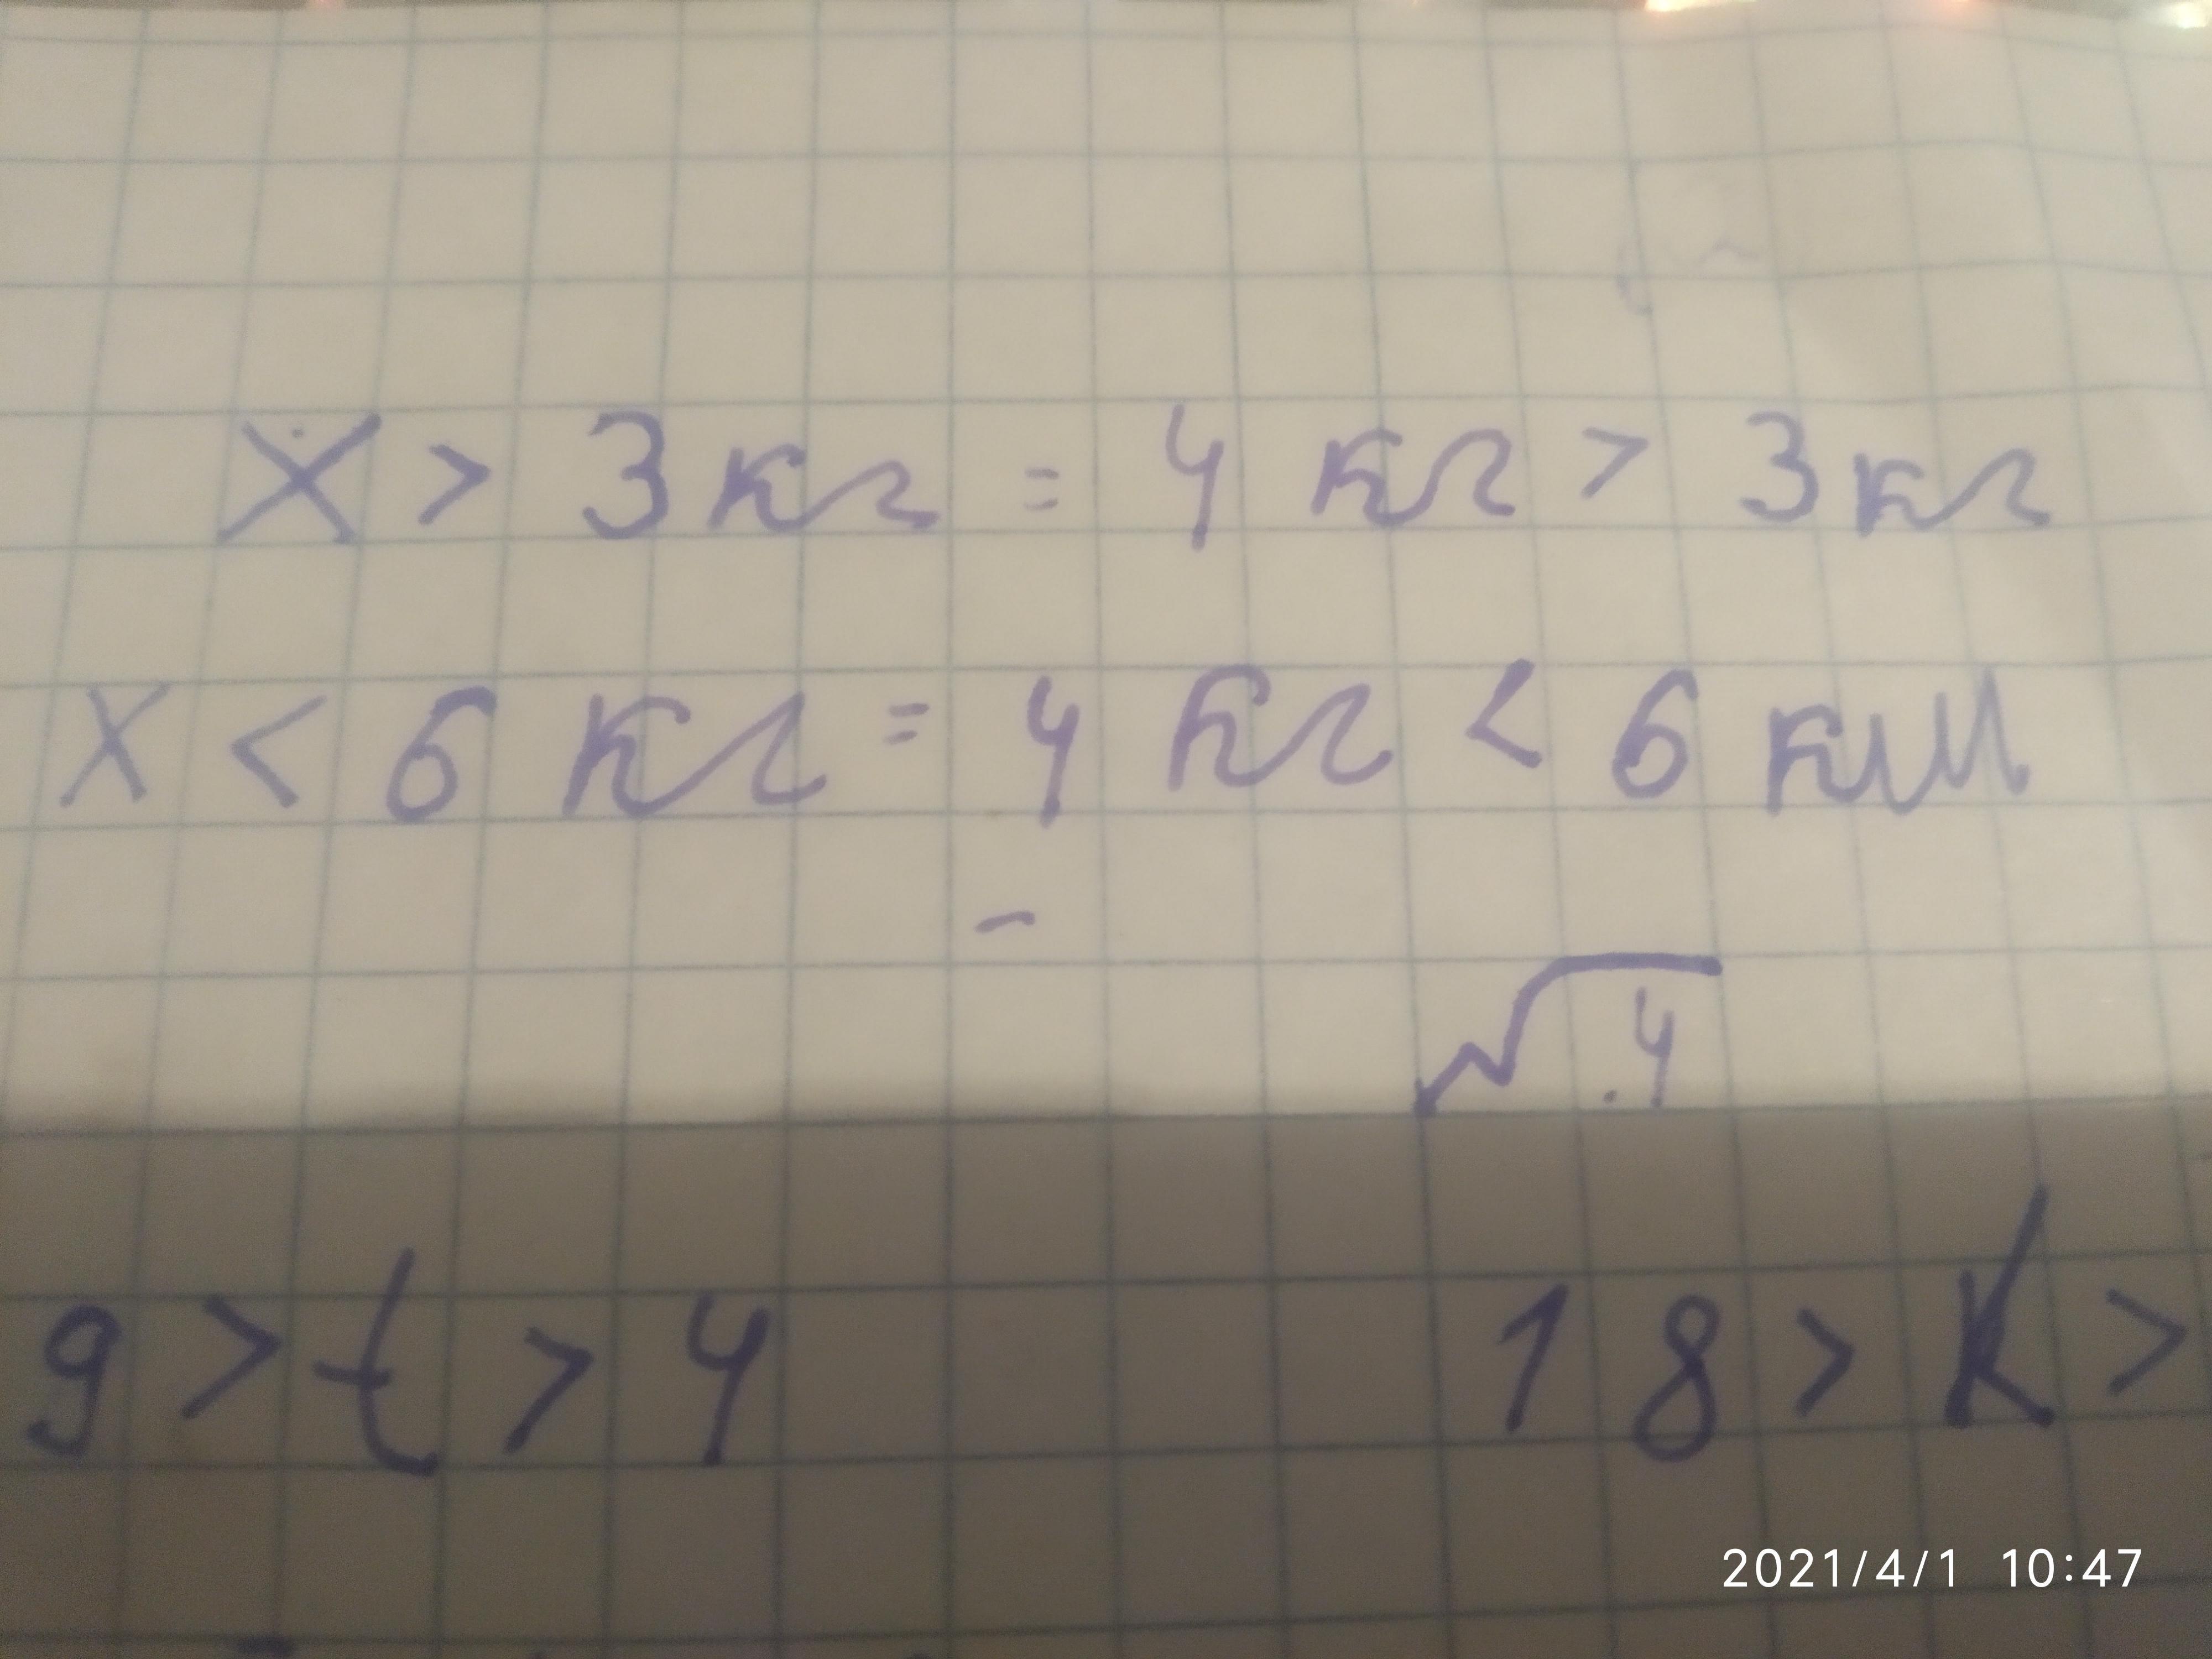 x > 3 кг = 4 кг > 3 кг
x < 6 кг = 4 кг < 6 км
-
√4
9 > t > 4 18 > K >
2021/4/1 10:47